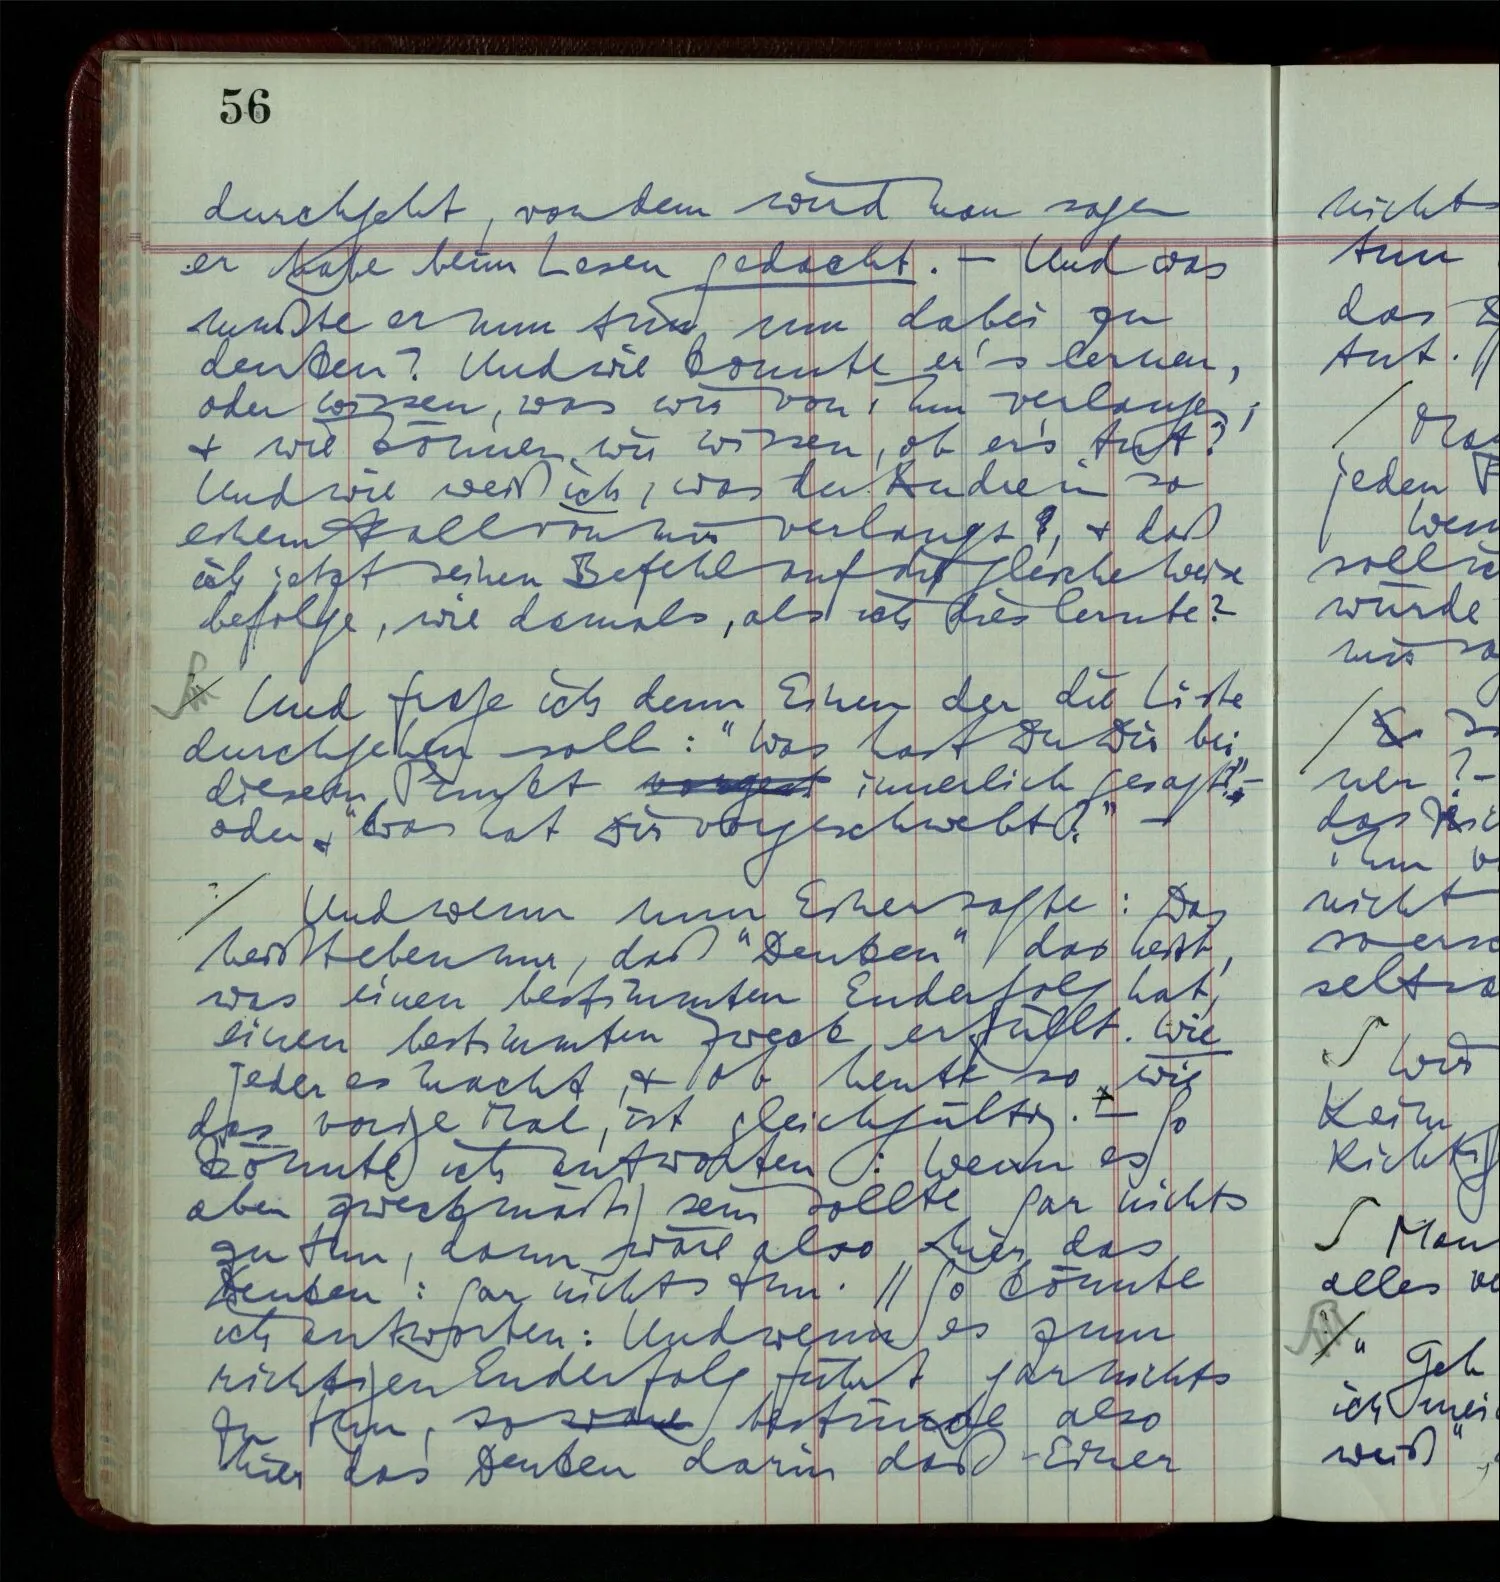 56
durchgeht, von dem wird man sagen
er habe beim Lesen gedacht. – Und was
mußte er nun tun, um dabei zu
denken? Und wie konnte er's lernen,
oder wissen, was wir von ihm verlangen;
& wie können wir wissen, ob er's tut?
Und wie weiß ich, was der Andre in so
einem Fall von mir verlangt?, & daß
ich jetzt seinen Befehl auf die gleiche Weise
befolge, wie damals, als ich dies lernte?
Und frage ich denn Einen der die Liste
durchgehen soll: "Was hast Du Dir bei
diesem Punkt vorgest innerlich gesagt?" –
oder "Was hat Dir vorgeschwebt?" –
Und wenn nun Einer sagte: Das
heißt eben nur, daß "Denken" das heißt,
was einen bestimmten Enderfolg hat,
einen bestimmten Zweck erfüllt. Wie
jeder es macht, & ob heute so wie
das vorige Mal, ist gleichgültig. – So
könnte ich antworten: Wenn es
aber zweckmäßig sein sollte gar nichts
zu tun, dann wäre also hier das
Denken: gar nichts tun. // So könnte
ich antworten: Und wenn es zum
richtigen Enderfolg führt gar nichts
zu tun, so wäre bestünde also
hier das Denken darin daß Einer
nichts
tun
das
tut. //
jeden
soll
würde
mir
ner? –
das
ihm
nicht
Wird
Kein
Man
alles
" Geh
ich
weiß",